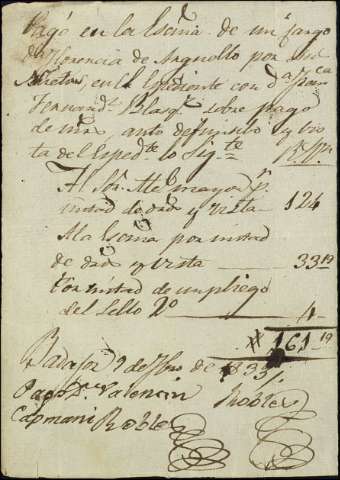 Pagó en la Escnia. de mi cargo
Florencia de Arguello por
en el Espediente con Da. Franca
Fernandz. Blasqz. sobre pago
de mrs, auto definitibo y vis
ta del Espedte. lo Sigte. Rs. Vn.
Al Sor. Alce. mayor pr.
mitad de dros y vista 124
A la Escnia por mitad
de dros y vista 33 19
Por mitad de un pliego
del Sello 2o 4
# 161 19
Badajoz 9 de 7bre de 835
Pago Dn. Valencin Robles
Capmani Robles